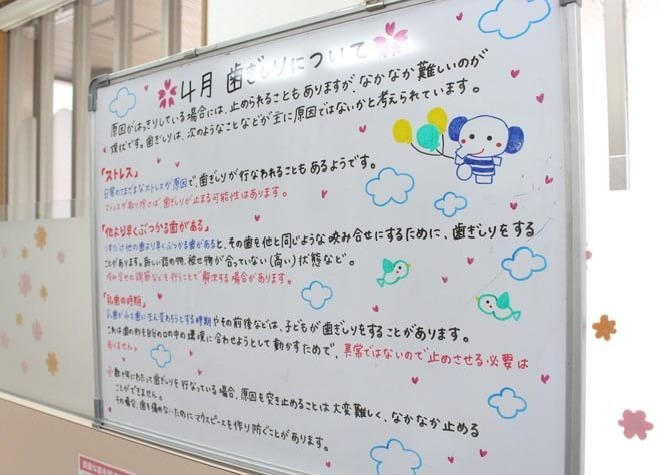 4月 歯ぎしりについて
原因がはっきりしている場合には、止められることもありますが、なかなか難しいのが
現状です。歯ぎしりは、次のようなことなどが主に原因ではないかと考えられています。
「ストレス」
日常のさまざまなストレスが原因で、歯ぎしりが行なわれることもあるようです。
ストレスが取り除けば、歯ぎしりが止まる可能性はあります。
「他より早くぶつかる歯がある」
1本だけ他の歯より早くぶつかる歯があると、その歯を他と同じような咬み合せにするために、歯ぎしりをする
ことがあります。新しい詰め物、被せ物が合っていない(高い)状態など。
咬み合せの調節などを行うことで解決する場合があります。
「乳歯の時期」
乳歯が永久歯に生え変わろうとする時期やその前後などは、子どもが歯ぎしりをすることがあります。
これは歯の形を自分の口の中の環境に合わせようとして動かすためで、異常ではないので止めさせる必要は
ありません。
数ヶ年にわたって歯ぎしりを行なっている場合、原因を突き止めることは大変難しく、なかなか止める
ことができません。
その場合、歯を痛めないためにマウスピースを作り防ぐことがあります。